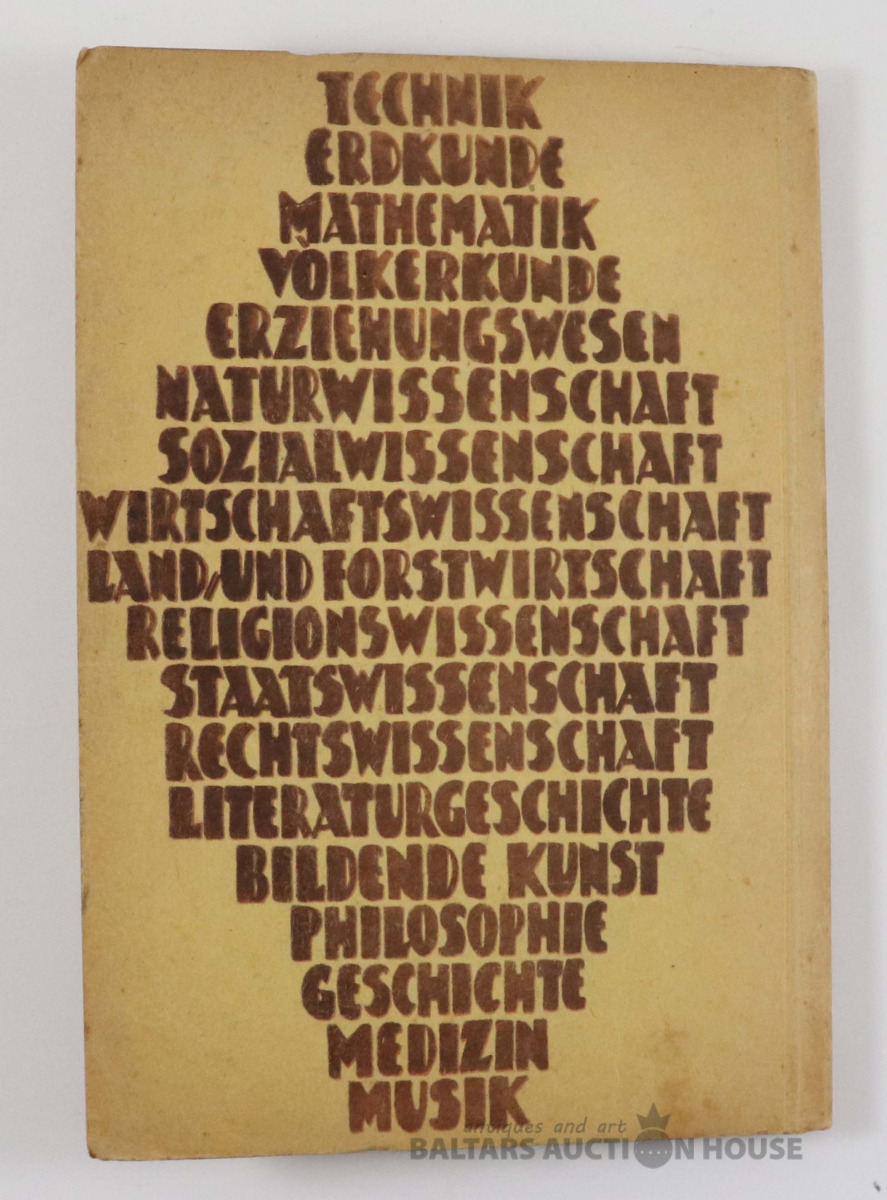 TECHNIK
ERDKUNDE
MATHEMATIK
VÖLKERKUNDE
ERZIEHUNGSWESEN
NATURWISSENSCHAFT
SOZIALWISSENSCHAFT
WIRTSCHAFTSWISSENSCHAFT
LAND-UND FORSTWIRTSCHAFT
RELIGIONSWISSENSCHAFT
STAATSWISSENSCHAFT
RECHTSWISSENSCHAFT
LITERATURGESCHICHTE
BILDENDE KUNST
PHILOSOPHIE
GESCHICHTE
MEDIZIN
MUSIK
antiques and art
BALTARS AUCTION HOUSE